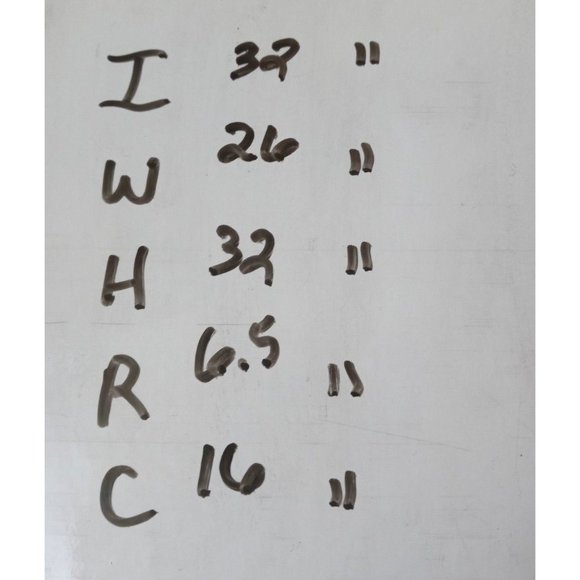 I 32 "
W 26 "
H 32 "
R 6.5 "
C 16 "